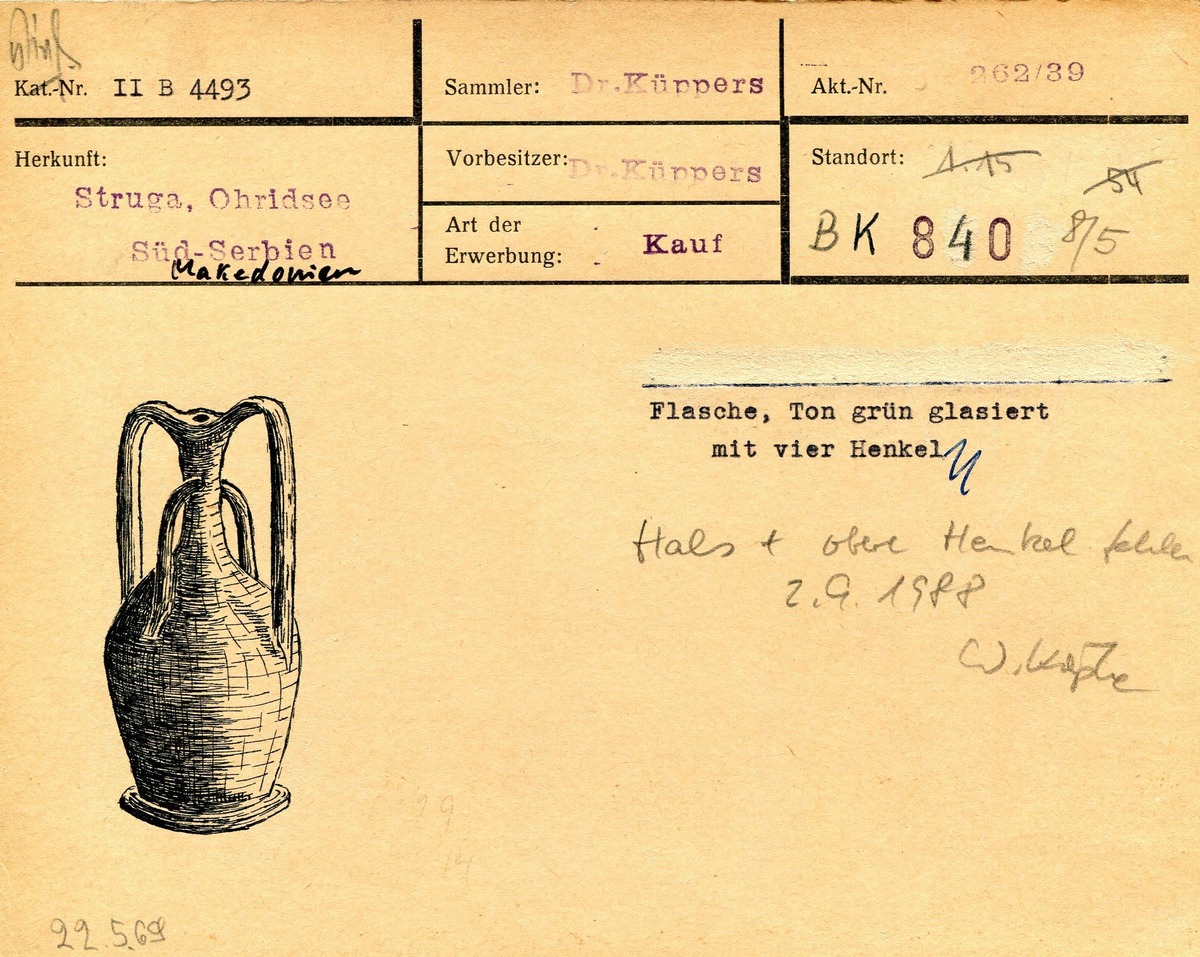 Kat.-Nr. II B 4493
Sammler: Dr.Küppers
Akt.-Nr. 262/39
Herkunft:
Struga, Ohridsee
Süd-Serbien
Makedonien
Vorbesitzer: Dr.Küppers
Art der
Erwerbung: Kauf
Standort: 1.15 54
BK 840 8/5
Flasche, Ton grün glasiert
mit vier Henkeln
Hals + obere Henkel fehlen
2.9.1988
29
14
22.5.69